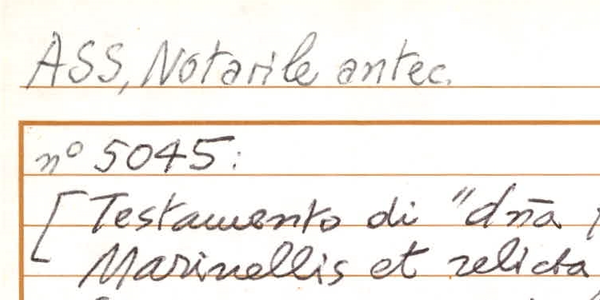 ASS, Notarile antec.
nº 5045:
[Testamento di "dña
Marinellis et relicta